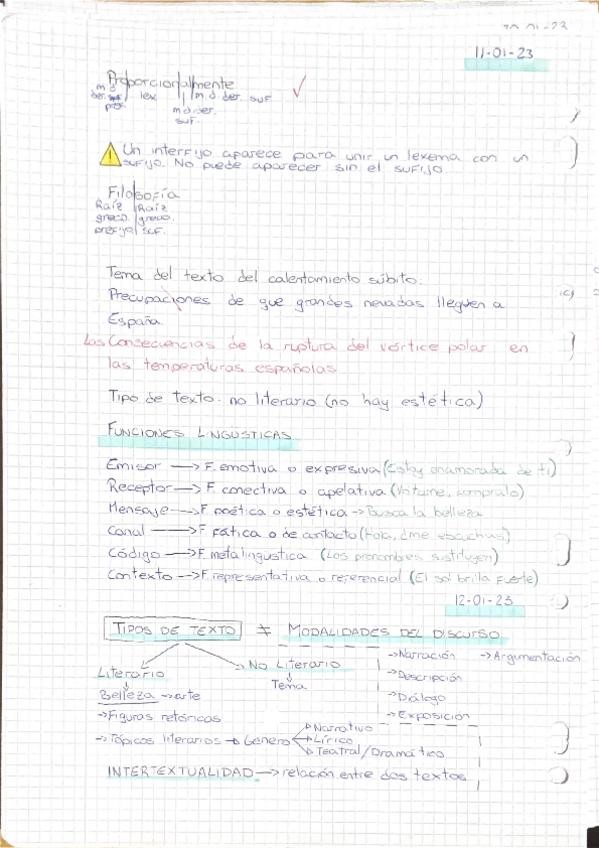 11-01-23
Proporcionalmente
lex
m d der. suf
m d der.
suf.
Un interfijo aparece para unir un lexema con un
sufijo. No puede aparecer sin el sufijo.
Filosofía
Raíz Raíz
greco. greco.
prefijo suf.
Tema del texto del calentamiento súbito:
Precupaciones de que grandes nevadas lleguen a
España.
Las Consecuencias de la ruptura del vórtice polar en
las temperaturas españolas
Tipo de texto: no literario (no hay estética)
FUNCIONES LINGÜSTICAS
Emisor → F. emotiva o expresiva (Estoy enamorada de ti)
Receptor → F. conectiva o apelativa (compralo)
Mensaje → F. poética o estética → Busca la belleza
Canal → F. fática o de contacto (Hola, ¿me escuchas)
Código → F. metalingustica (Los pronombres sustituyen)
Contexto → F. representativa o referencial (El sol brilla fuerte)
12-01-23
TIPOS DE TEXTO ≠ MODALIDADES DEL DISCURSO
→ Narración → Argumentación
Literario → No Literario
→ Descripción
Belleza → arte Tema
→ Diálogo
→ Figuras retóricas → Exposición
→ Tópicos literarios → Genero → Narrativo
→ Lírico
→ Teatral/Dramático
INTERTEXTUALIDAD → relación entre dos textos